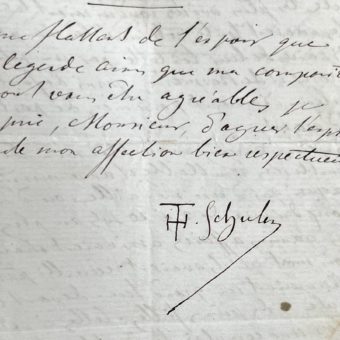 me flattant de l'espoir que
légende ainsi que ma composi
ont vous être agréables je
prie, Monsieur, d'agréer l'exp
de mon affection bien respectueu
TH. Schuler